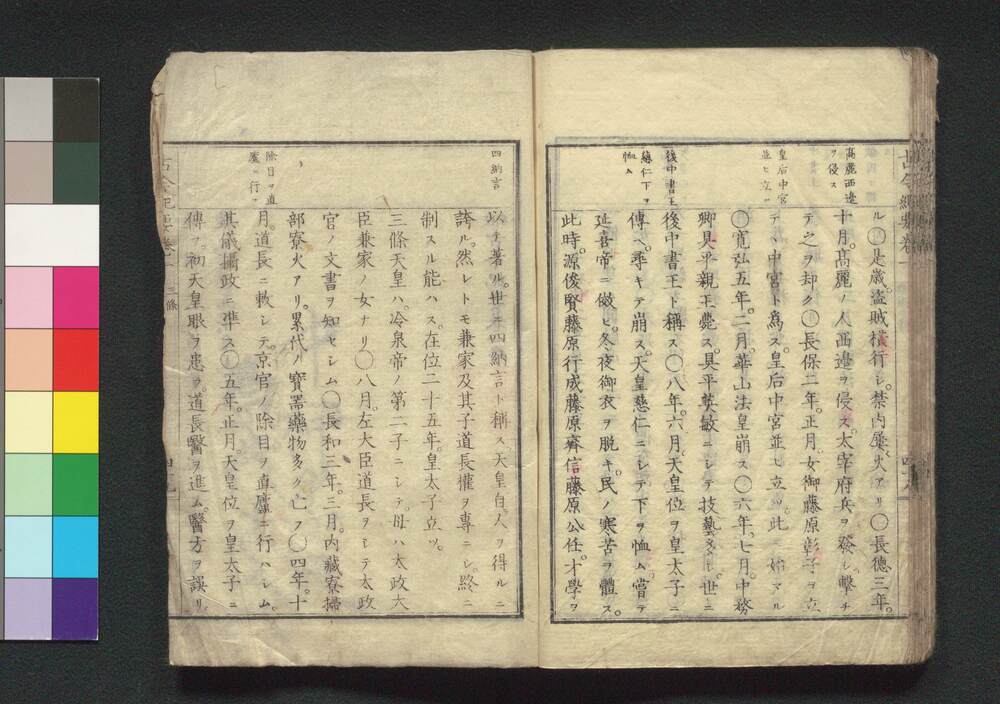 高麗西邊
ヲ侵ス
皇后中宮
並ヒ立ツ
後中書王
慈仁下ヲ
恤ム
ル〇是歳。盗賊橫行シ。禁内屢火アリ〇長德三年。
十月。高麗ノ人西邊ヲ侵ス。太宰府兵ヲ發シ。擊チ
テ之ヲ却ク〇長保二年。正月。女御藤原彰子ヲ立
テヽ中宮ト爲ス。皇后中宮並ヒ立ツ。此ニ始マル
〇寬弘五年。二月。華山法皇崩ス〇六年。七月。中務
卿具平親王薨ス。具平英敏ニシテ技藝多シ。世ニ
後中書王ト稱ス〇八年。六月。天皇位ヲ皇太子ニ
傳ヘ。尋キテ崩ス。天皇慈仁ニシテ下ヲ恤ム。嘗テ
延喜帝ニ倣ヒ。冬夜御衣ヲ脫キ。民ノ寒苦ヲ體ス。
此時。源俊賢藤原行成藤原齊信藤原公任。才學ヲ
四納言
除目ヲ直
廬ニ行フ
以テ著ル。世ニ四納言ト稱ス天皇自人ヲ得ルニ
誇ル。然レトモ兼家及其子道長權ヲ專ニシ。終ニ
制スル能ハス。在位二十五年。皇太子立ツ。
三條天皇ハ。冷泉帝ノ第二子ニシテ。母ハ太政大
臣兼家ノ女ナリ〇八月。左大臣道長ヲシテ太政
官ノ文書ヲ知セシム〇長和三年。三月。内藏寮掃
部寮火アリ。累代ノ寶器藥物多ク亡フ〇四年。十
月。道長ニ敕シテ。京官ノ除目ヲ直廬ニ行ハシム。
其儀攝政ニ準ス〇五年。正月。天皇位ヲ皇太子ニ
傳フ。初天皇眼ヲ患ヲ道長醫ヲ進ム。醫方ヲ誤リ
三條